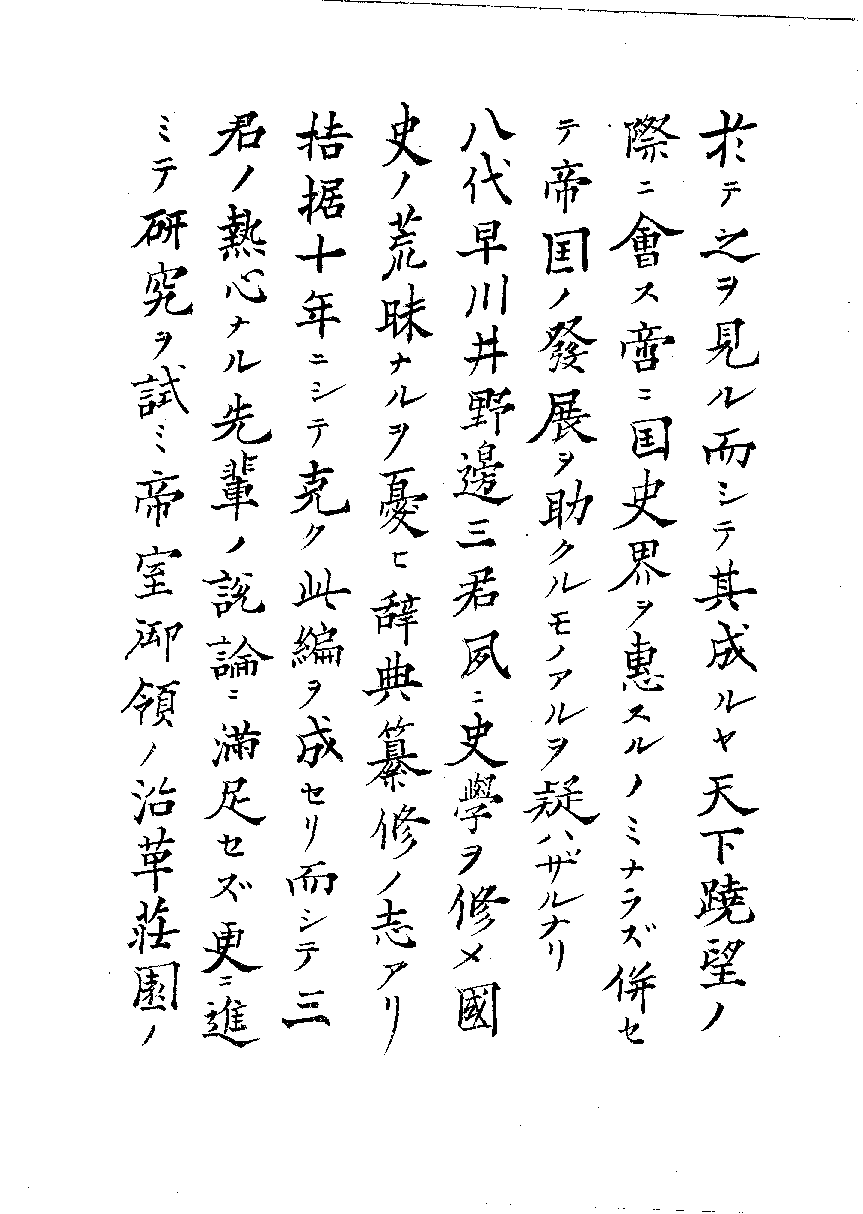 於テ之ヲ見ル而シテ其成ルヤ天下蹺望ノ
際ニ會ス啻ニ囯史界ヲ惠スルノミナラズ併セ
テ帝囯ノ發展ヲ助クルモノアルヲ疑ハザルナリ
八代早川井野邊三君夙ニ史學ヲ修メ國
史ノ荒昧ナルヲ憂ヒ辞典纂修ノ志アリ
拮据十年ニシテ克ク此編ヲ成セリ而シテ三
君ノ熱心ナル先輩ノ説論ニ満足セズ更ニ進
ミテ研究ヲ試ミ帝室御領ノ沿革莊園ノ